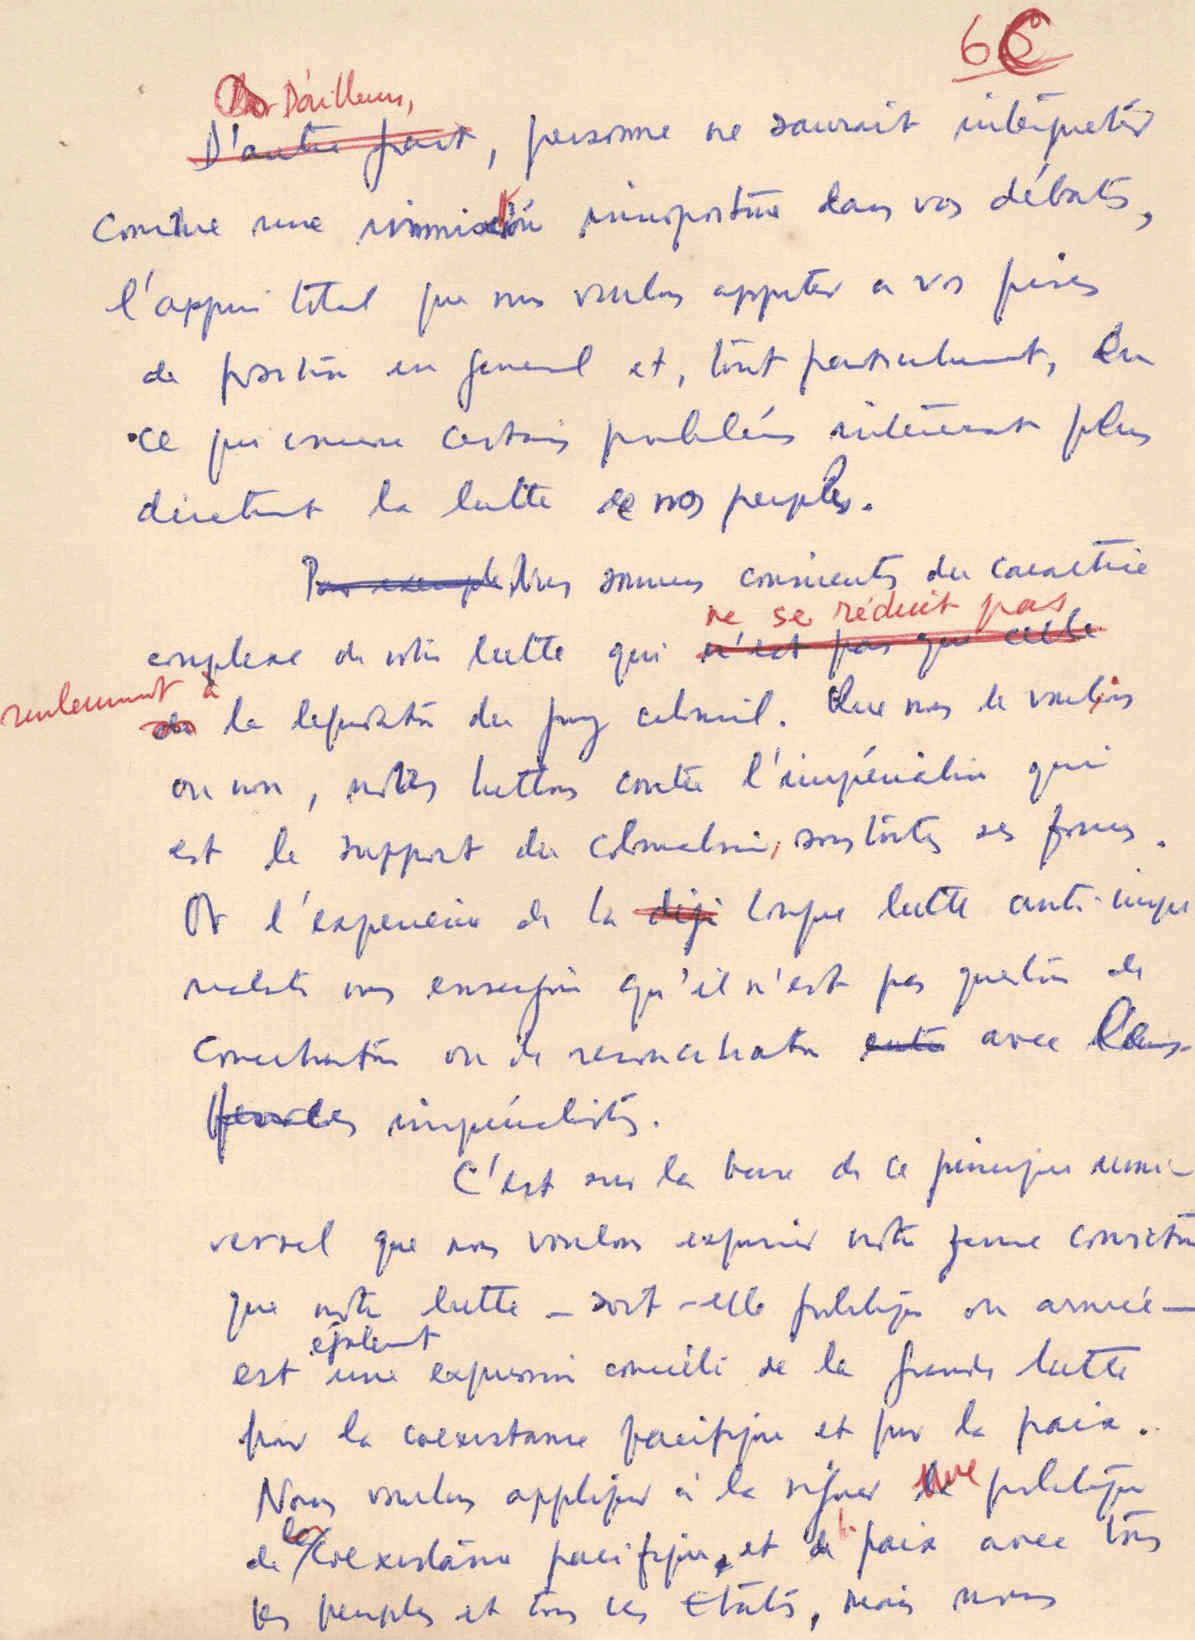 6
D'ailleurs,
D'autre part, personne ne saurait interpréter
comme une immixtion inoportune dans vos débats,
l'appui total que nous voulons apporter a vos prises
de position en general et, tout particulierement, en
ce qui concerne certains problèmes intéressant plus
directement la lutte de nos peuples.
Par exemple Nous sommes conscients du caractère
ne se réduit pas
complexe de notre lutte qui n'est pas que celle
seulement à
de la liquidation du joug colonial. Que nous le voulions
ou non, nous luttons contre l'impérialisme qui
est le support du colonialisme, sous toutes ses formes.
Or l'experience de la déjà longue lutte anti-impe
rialiste nous enseigne qu'il n'est pas question de
conciliation ou de reconciliation entre avec les
forces impérialistes.
C'est sur la base de ce principe uni-
versel que nous voulons exprimer notre ferme conviction
que notre lutte – soit-elle politique ou armée –
également
est une expression concrète de la grande lutte
pour la coexistence pacifique et pour la paix.
Nous voulons appliquer à la rigueur une politique
la
de coexistence pacifique, et de paix avec tous
les peuples et tous les Etats, mais nous